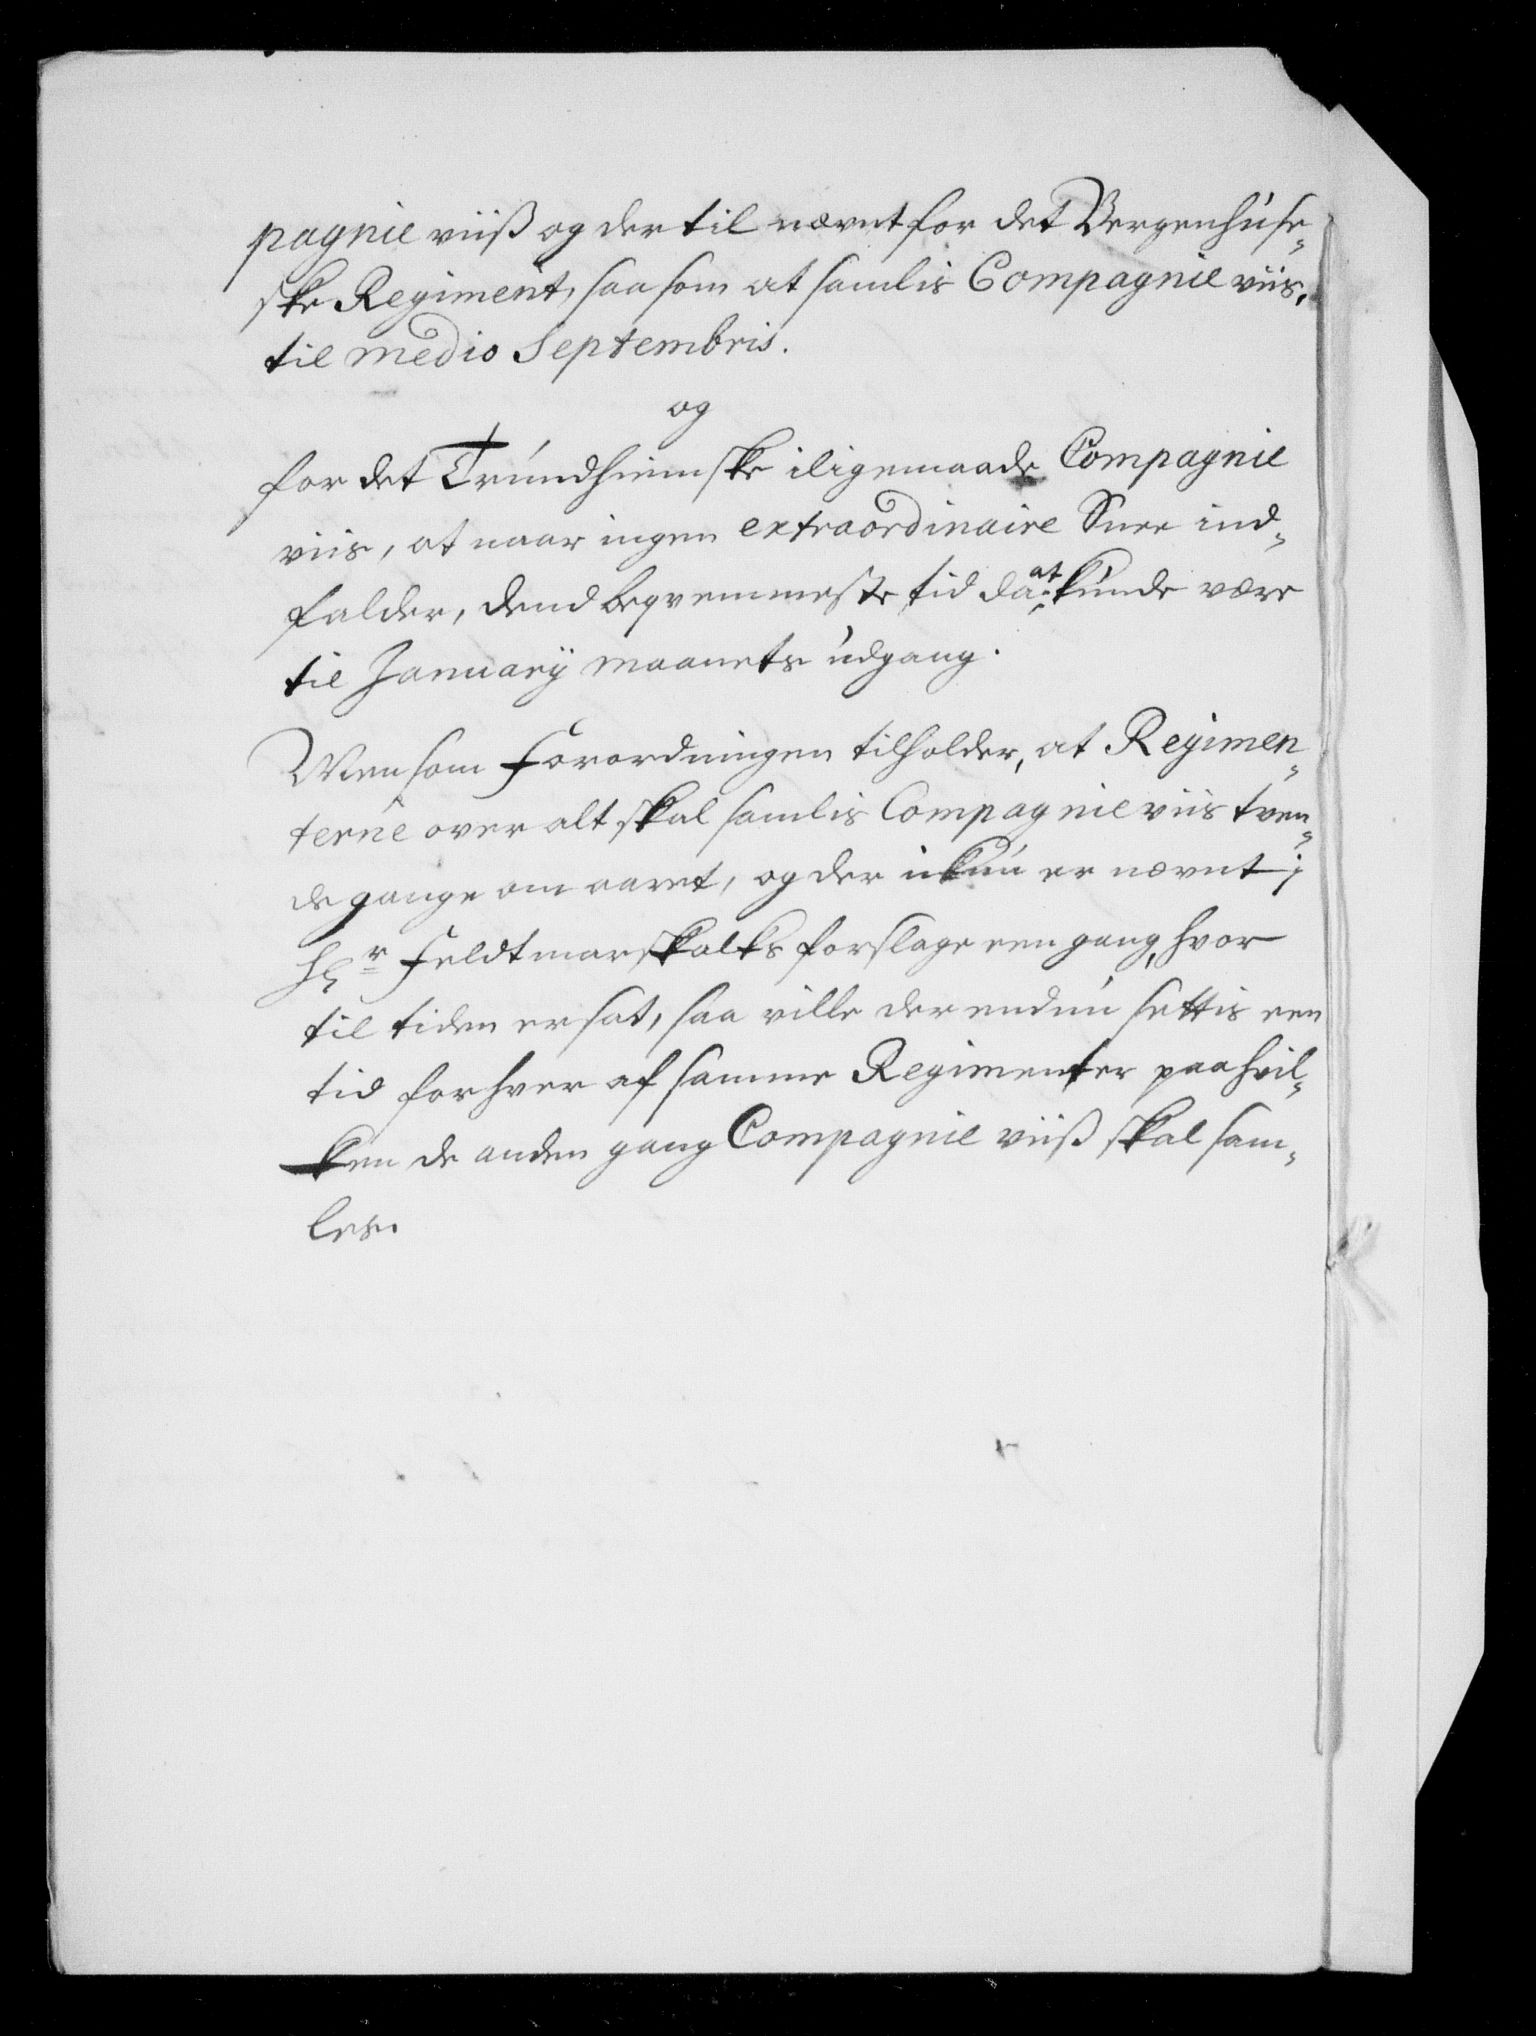 pagnie viiß og der til nævnt for det Bergenhuse-
ske Regiment, saa som at samlis Compagnie viis,
til medio Septembris.
og
for det Trundhiemske iligemaade Compagnie
viis, at naar ingen extraordinaire Snee ind-
falder, dend beqvemmeste tid da at kunde være
til Januarij maanets udgang.
Men som Forordningen tilholder, at Regimen-
terne over alt skal samlis Compagnie viis tven-
de gange om aaret, og der ickun er nævnt i
Hr Feldtmarskalks forslage een gang, hvor
til tiden er sat, saa ville der endnu settis een
tid for hver af samme Regimenter paa hvil-
ken de anden gang Compagnie viiß skal sam-
les.